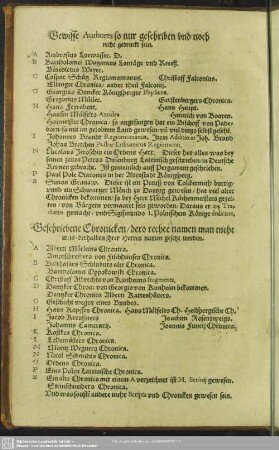 Gewisse Authores so nur geschriben und noch
nicht gedruckt sein.
A Ambrosius Lorwasser. D.
B Bartholomei Wayneri Landtäge und Receß.
Benedictus Weyer.
C Caspar Schütz Regiomontanus. Christoff Falconius.
Elbinger Chronica: ander theil Falconij.
G Georgius Dancke Königsberger Physicus.
Gregorius Möller. Gerstenbergers Chronica.
H Hans Ferrabent. Hans Haupt.
Hansen Mülfelts Annales Heinrich von Booren.
Haumeister Chronica: so angefangen hat ein Bischoff von Pade-
born so mit im gelobten Land gewesen und viel dings selbst gesehē.
I Johannes Brandt Regiomontanus. Jtem Additiones Joh. Brand
Johan Bretchen Pastor Lethaniensis Regiomont.
N Nicolaus Jeroschin ein Ordens Herr. Dieser hat alles was bey
seiner zeiten Petrus Duisburg Lateinisch geschrieben in Deutsche
Reimen gebracht. Ist gemeinlich auff Pergamen geschrieben.
P Paul Pole Diaconus in der Altenstadt Königsberg.
S Simon Grunaw. Dieser ist ein Preuß von Tolckemitt bürtig:
und ein Schwartzer Mönch zu Dantzig gewesen: hat viel alter
Chroniken bekommen: so bey Herr Michel Küchenmeistern gezei-
ten: von Bürgern vermauret sein geworden: Daraus er 25 Tra-
ctaten gemacht: und Sigismundo I. Polnischem Könige dediciret.
Geschriebene Chroniken: dero rechte namen man nicht
weis: derhalben ihrer Herren namen gesetzt werden.
A Alberti Mileken Chronica.
Ampschreibers von Fischhausen Chronica.
B Balthasers Schlindnits alte Chronica.
Bartholomei Oppokowski Chronica.
C Christoff Albrechts von Kunheim fragmenta.
D Dangker Chron: von Georgio von Kunheim bekommen.
Dangker Chronica Albert Kattenhöuers.
G Geschicht wegen eines Bundes.
H Hans Kopffer Chronica. Hans Mülfelts Ch. Heilsbergische Ch.
I Jacob Kreussners Joachim Rosenzweigs.
Johannis Camerarij. Joannis Funcij Chronica.
K Kostken Chronica.
L Lobemülters Chronica.
M Moritz Wegners Chronica.
N Nicol Schmides Chronica.
O Ordens Chronica.
P Eins Polen Lateinische Chronica.
S Ein alte Chronica mit einem A verzeichnet ist M. Strobej gewesen.
Steinschneiders Chronica.
Und was sonst andere mehr Scripta und Chroniken gewesen sein.